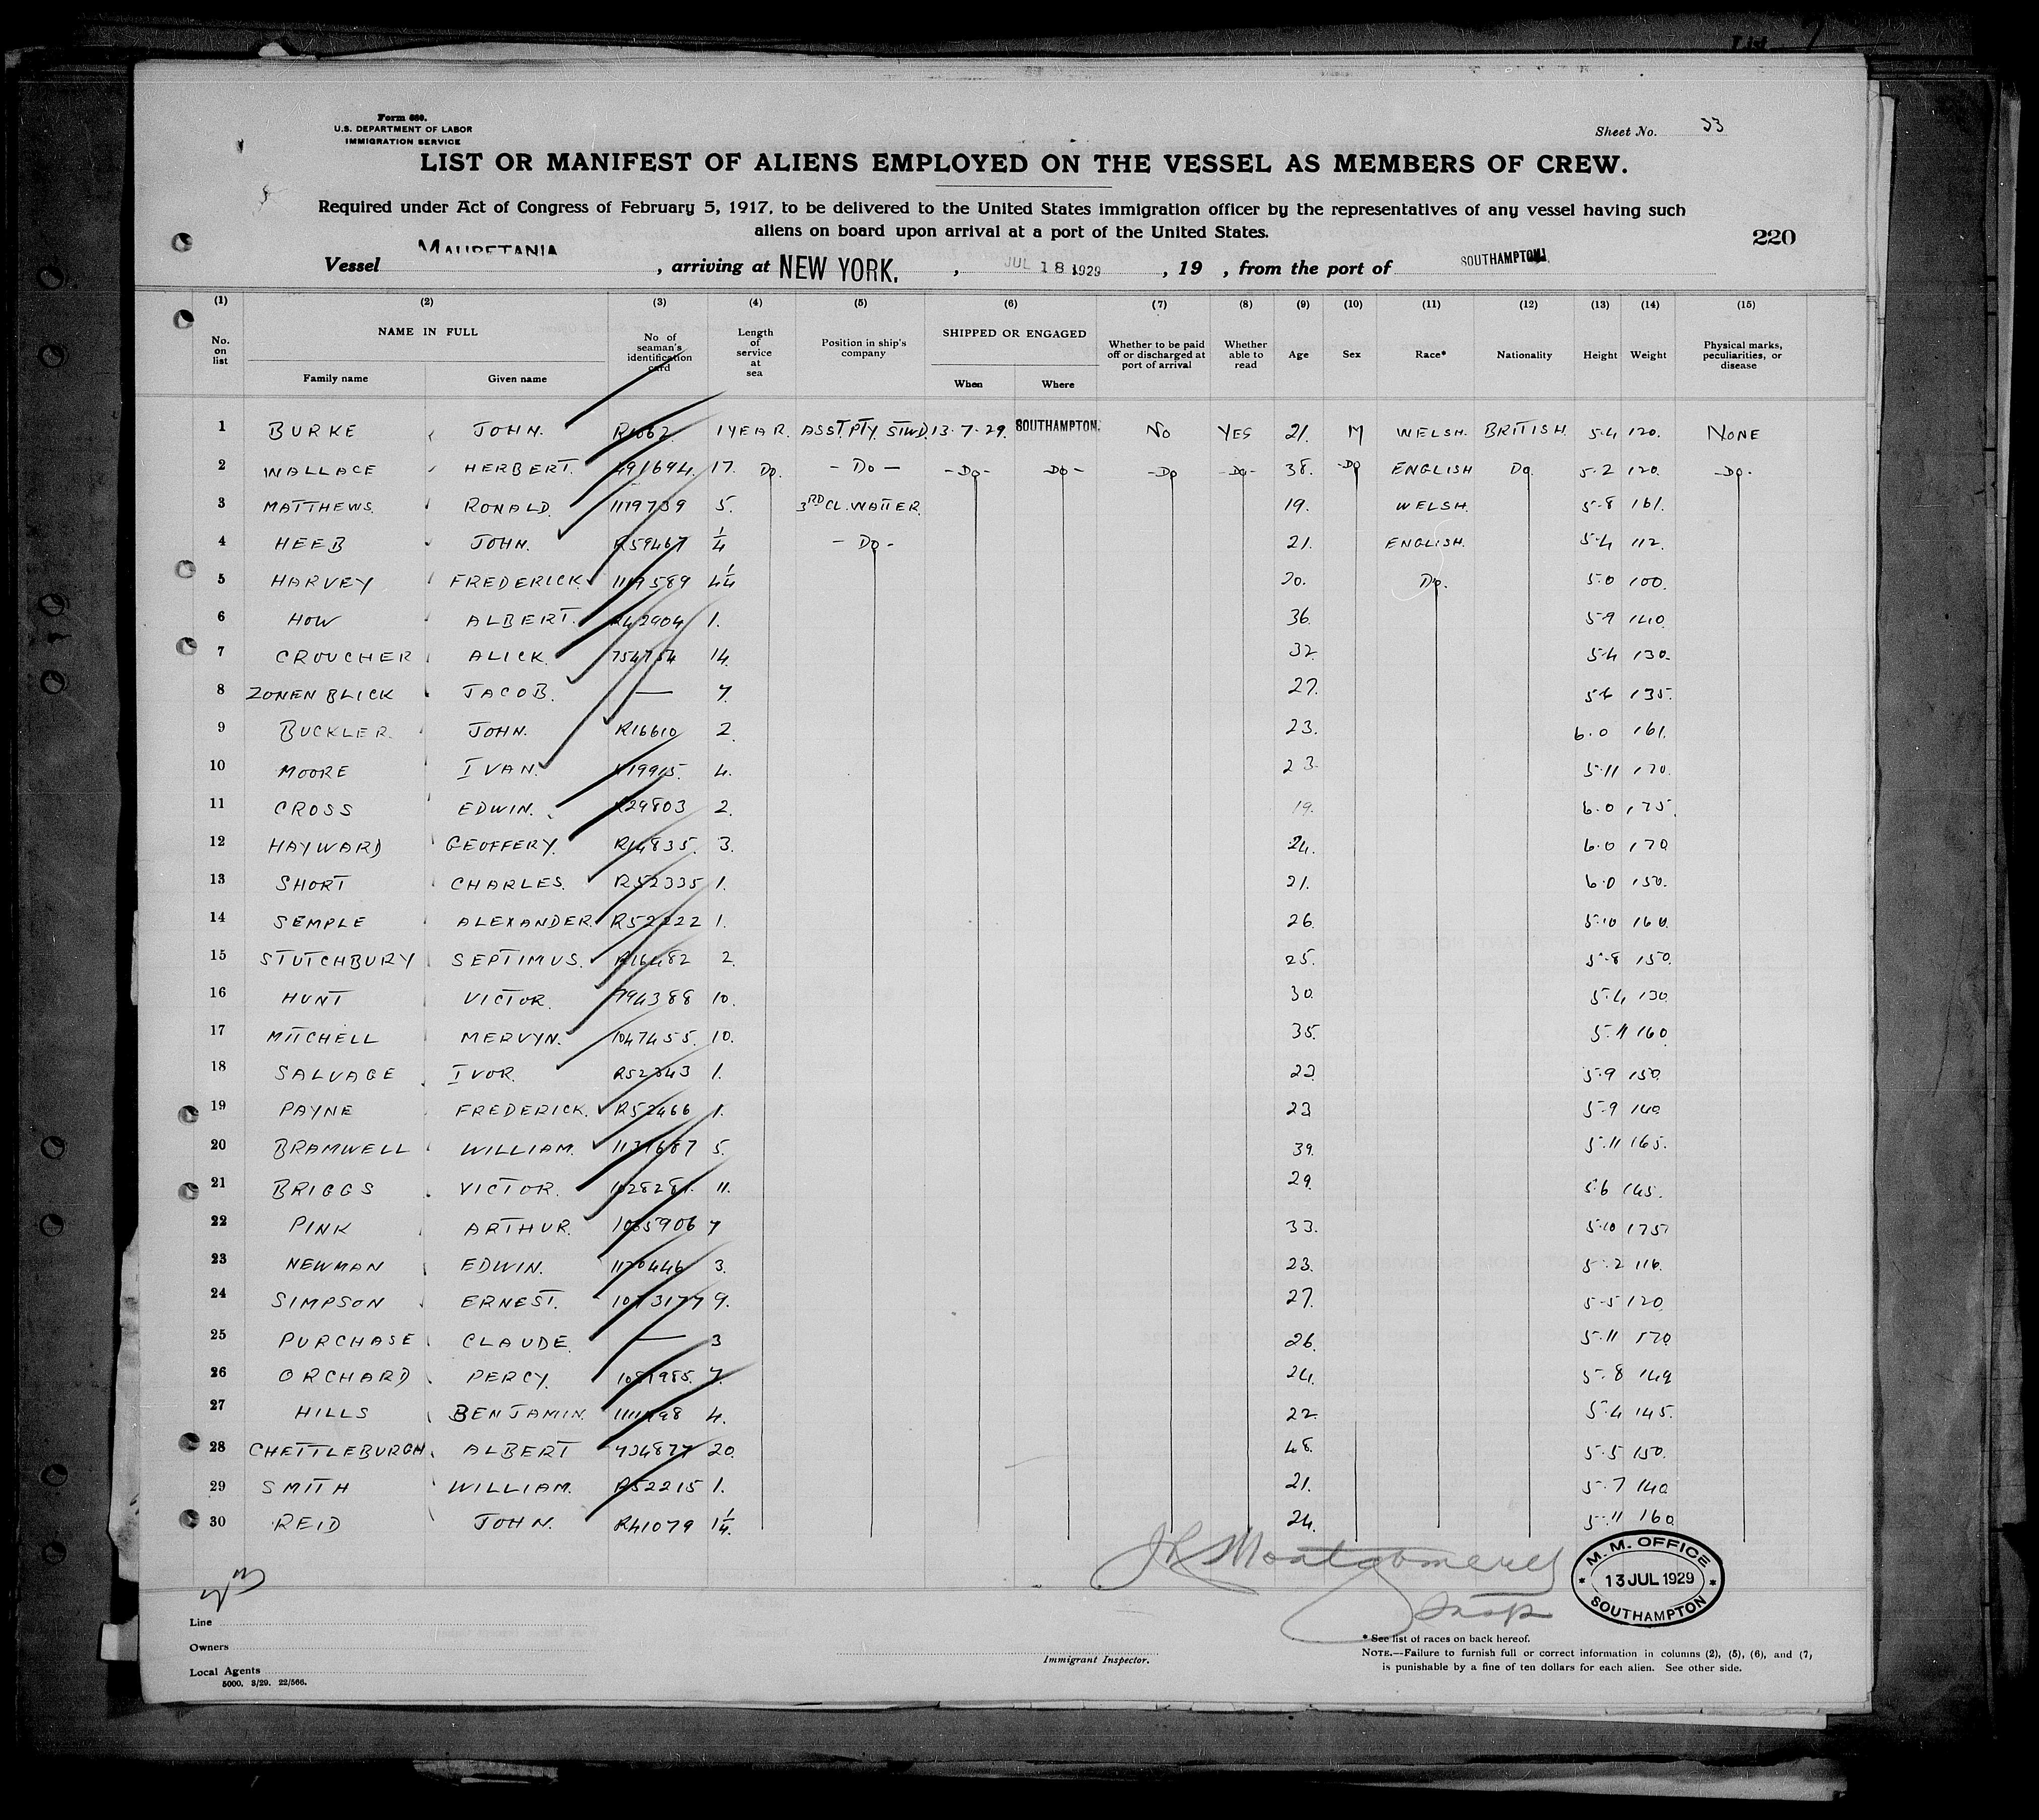 List 7
Form 680.
U.S. DEPARTMENT OF LABOR
IMMIGRATION SERVICE
Sheet No. 33
LIST OR MANIFEST OF ALIENS EMPLOYED ON THE VESSEL AS MEMBERS OF CREW.
Required under Act of Congress of February 5, 1917, to be delivered to the United States immigration officer by the representatives of any vessel having such
aliens on board upon arrival at a port of the United States.
220
Vessel MAURETANIA, arriving at NEW YORK, JUL 18 1929, 19 , from the port of SOUTHAMPTON
(1) (2) (3) (4) (5) (6) (7) (8) (9) (10) (11) (12) (13) (14) (15)
No. on list NAME IN FULL Family name Given name No of seaman's identification card Length of service at sea Position in ship's company SHIPPED OR ENGAGED When Where Whether to be paid off or discharged at port of arrival Whether able to read Age Sex Race* Nationality Height Weight Physical marks, peculiarities, or disease
1 BURKE JOHN. 1 YEAR. ASST. PTY. STWD. 13-7-29. SOUTHAMPTON. NO YES 21. M WELSH. BRITISH. 5-4 120. NONE
2 WALLACE HERBERT. 491694. 17. DO. - DO - - DO - - DO - - DO - DO - 38. - DO ENGLISH DO. 5-2 120. - DO -
3 MATTHEWS. RONALD. 1179739 5. 3RD CL. WAITER. 19. WELSH. 5-8 161.
4 HEEB JOHN. R59467 1/4 - DO - 21. ENGLISH. 5-4 112.
5 HARVEY FREDERICK. 1119589 4 1/4 20. DO. 5.0 100.
6 HOW ALBERT. R42904 1. 36. 5-9 140.
7 CROUCHER ALICK. 754754 14. 32. 5-4 130.
8 ZONENBLICK JACOB. — 7. 27. 5-6 135.
9 BUCKLER. JOHN. R16610 2. 23. 6.0 161.
10 MOORE IVAN. 4. 23. 5-11 170.
11 CROSS EDWIN. R29803 2. 19. 6.0 175.
12 HAYWARD GEOFFERY. R14835. 3. 24. 6.0 170
13 SHORT CHARLES. R52335 1. 21. 6.0 150.
14 SEMPLE ALEXANDER. R52222 1. 26. 5-10 160.
15 STUTCHBURY SEPTIMUS. R16482 2. 25. 5-8 150.
16 HUNT VICTOR. 794388 10. 30. 5-4 130.
17 MITCHELL MERVYN. 1047455. 10. 35. 5-11 160.
18 SALVAGE IVOR. R52343 1. 22. 5-9 150.
19 PAYNE FREDERICK. R52466 1. 23 5-9 140.
20 BRAMWELL WILLIAM. 5. 39. 5-11 165.
21 BRIGGS VICTOR. 11. 29. 5-6 145.
22 PINK ARTHUR. 1065906 7 33. 5-10 175.
23 NEWMAN EDWIN. 1170446 3. 23. 5-2 116.
24 SIMPSON ERNEST. 1073177 9. 27. 5-5 120.
25 PURCHASE CLAUDE. — 3 26. 5-11 170.
26 ORCHARD PERCY. 7. 24. 5-8 149
27 HILLS BENJAMIN. 4. 22. 5-4 145.
28 CHETTLEBURGH. ALBERT 20. 48. 5-5 150.
29 SMITH WILLIAM. R52215 1. 21. 5-7 140
30 REID JOHN. R41079 1 1/4. 24. 5-11 160.
J R Montgomery
M. M. OFFICE
13 JUL 1929
SOUTHAMPTON
Line
Owners
Local Agents
5000. 3/29. 22/566.
Immigrant Inspector.
* See list of races on back hereof.
NOTE.—Failure to furnish full or correct information in columns (2), (5), (6), and (7),
is punishable by a fine of ten dollars for each alien. See other side.